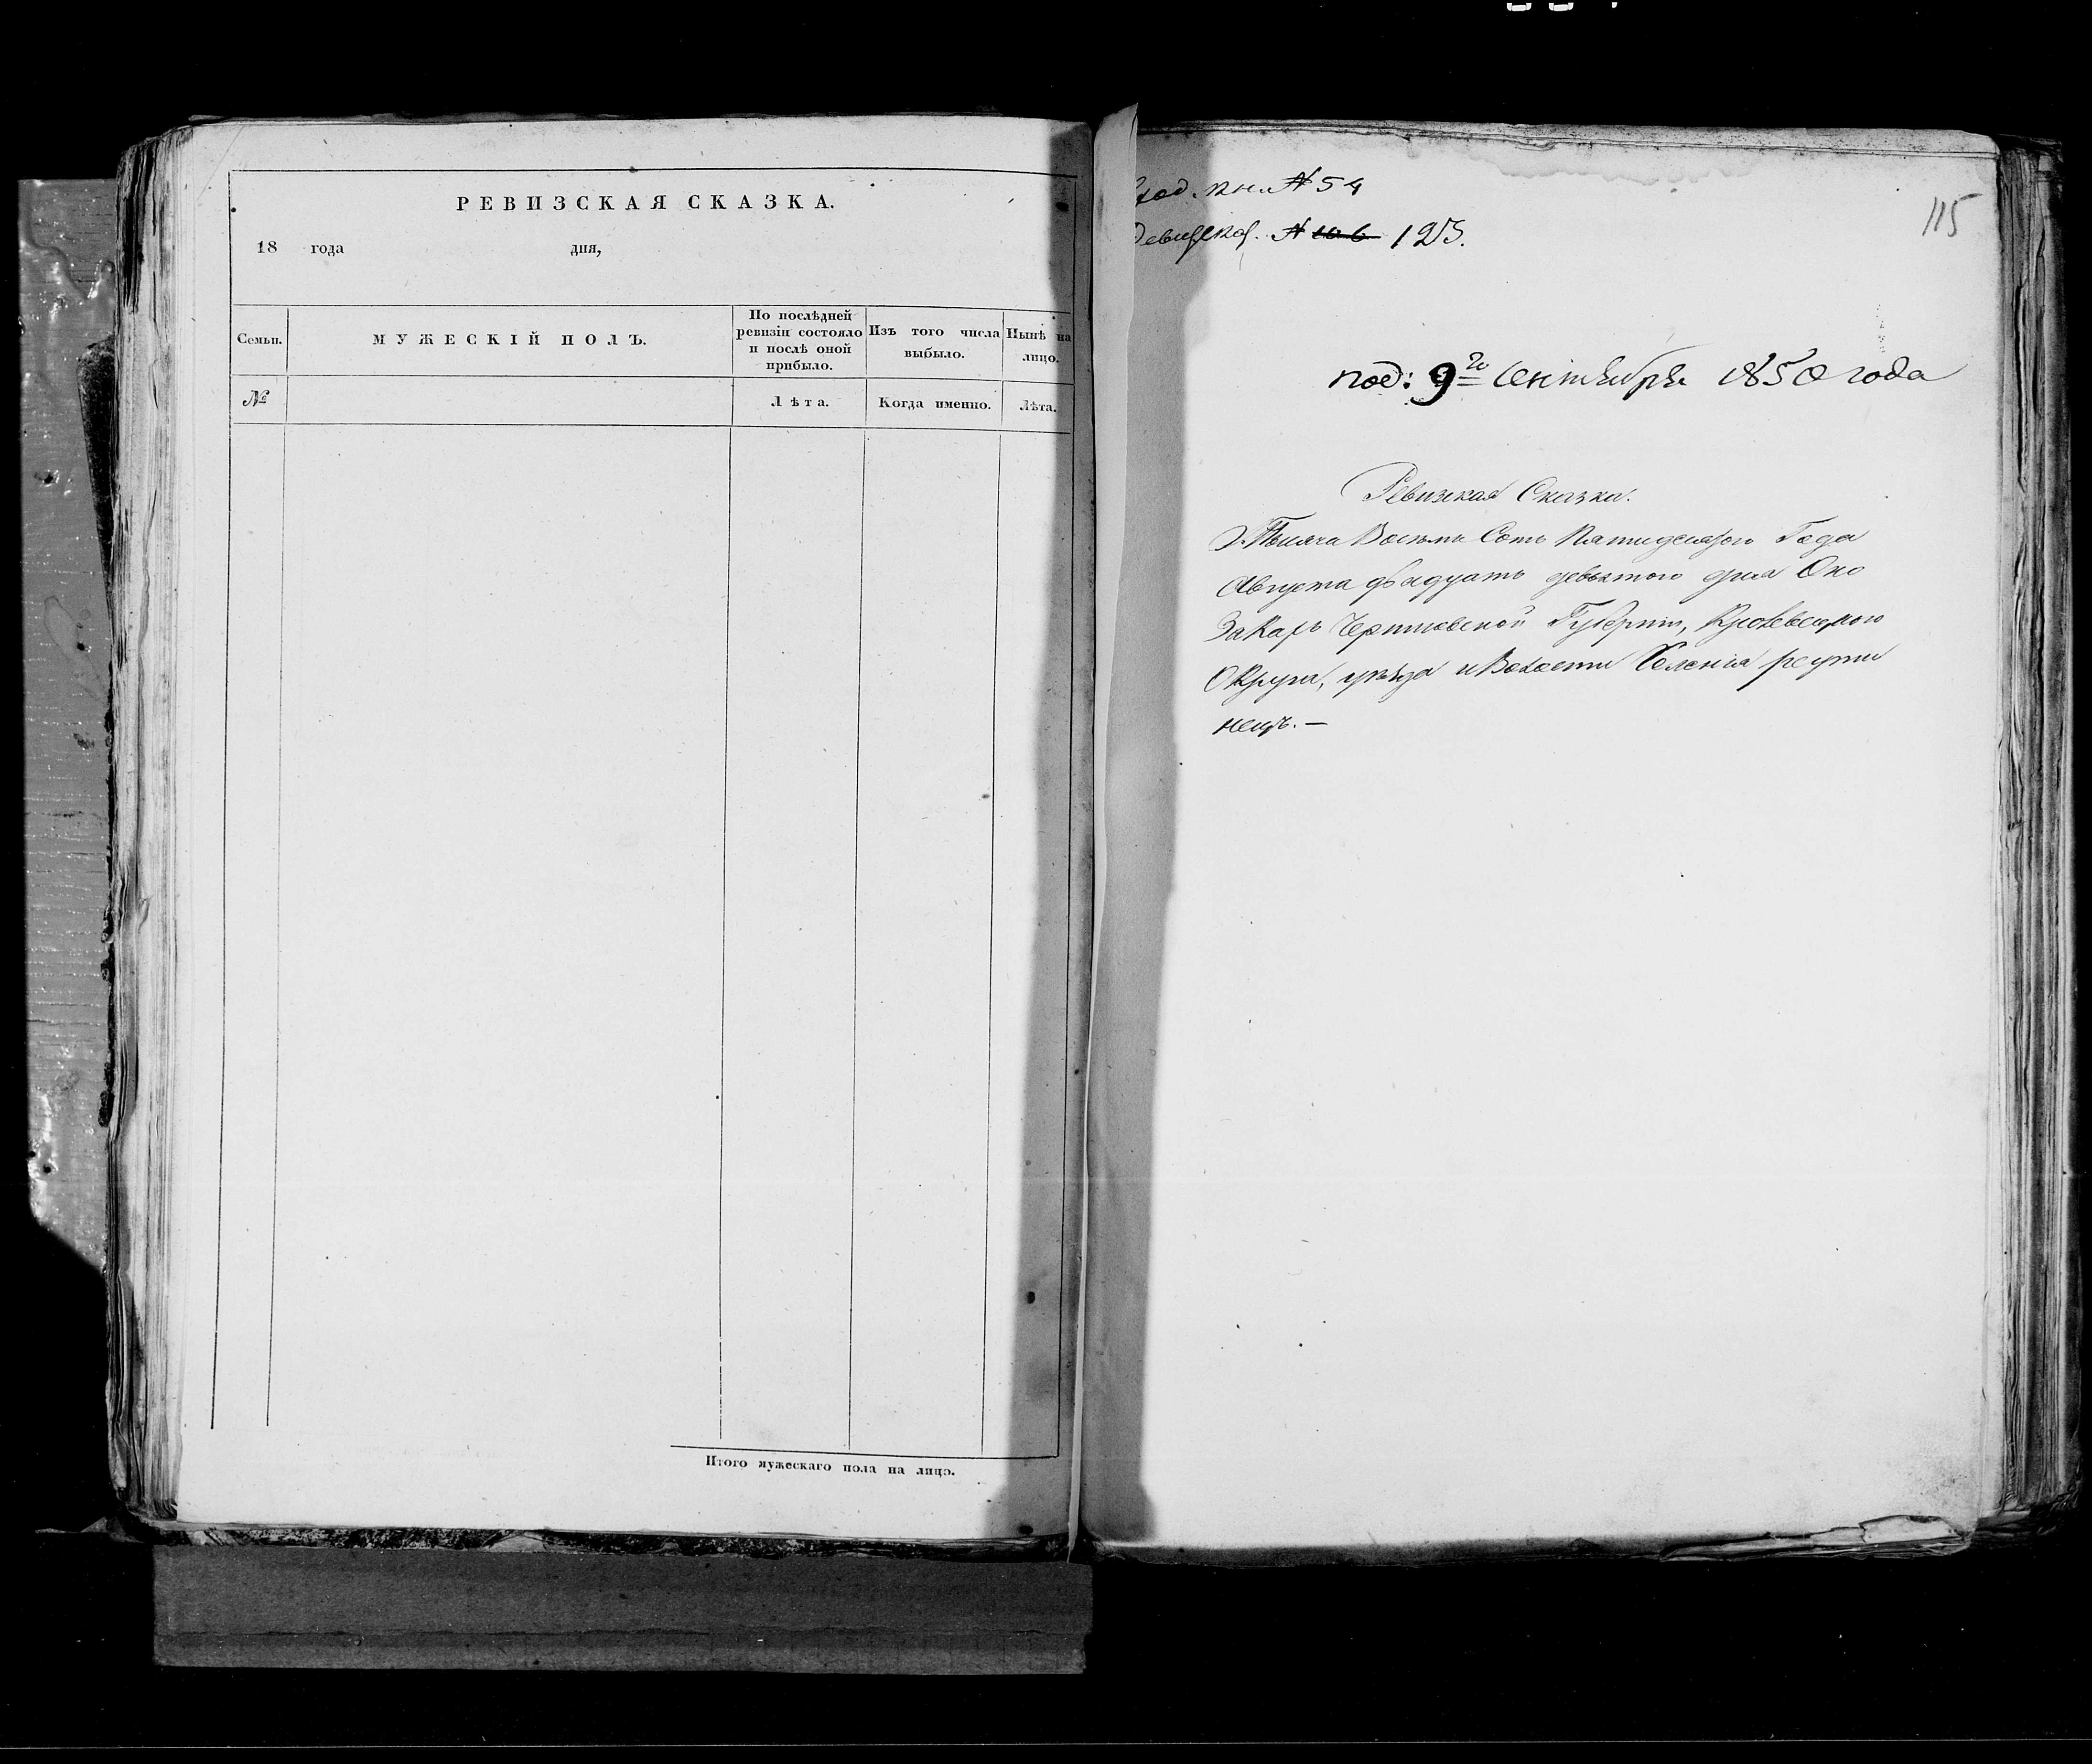 РЕВИЗСКАЯ СКАЗКА.
18 года дня,
Семьи.
МУЖЕСКІЙ ПОЛЪ.
По послѣдней
ревизіи состояло
и послѣ оной
прибыло.
Изъ того числа
выбыло.
Нынѣ на
лицо.
№
Лѣта.
Когда именно.
Лѣта.
Итого мужескаго пола на лицо.
№ 54
№ 106 125.
115
под: 9го Сентября 1850 года
Ревизкая Сказка.
Тысяча Восемь Сотъ Пятидесятого Года
Августа двадцать девятого дня Око
Черниговской Губерніи, Кролевецкого
Округа, уѣзда и Волости Селенія реути
нецъ.—